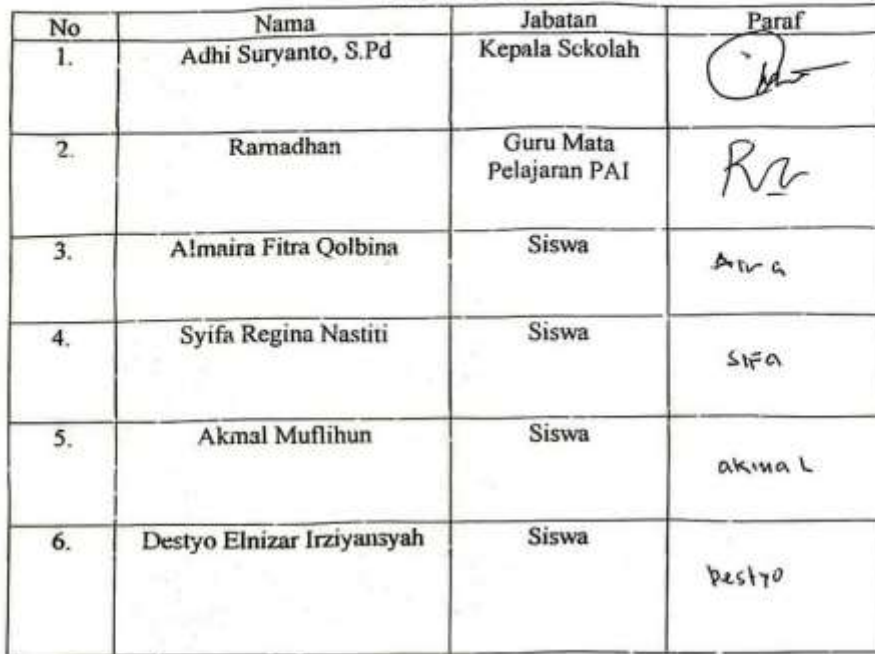 No Nama Jabatan Paraf
1. Adhi Suryanto, S.Pd Kepala Sekolah
2. Ramadhan Guru Mata
Pelajaran PAI
3. Almaira Fitra Qolbina Siswa
4. Syifa Regina Nastiti Siswa
sifa
5. Akmal Muflihun Siswa
akmal
6. Destyo Elnizar Irziyansyah Siswa
Destyo